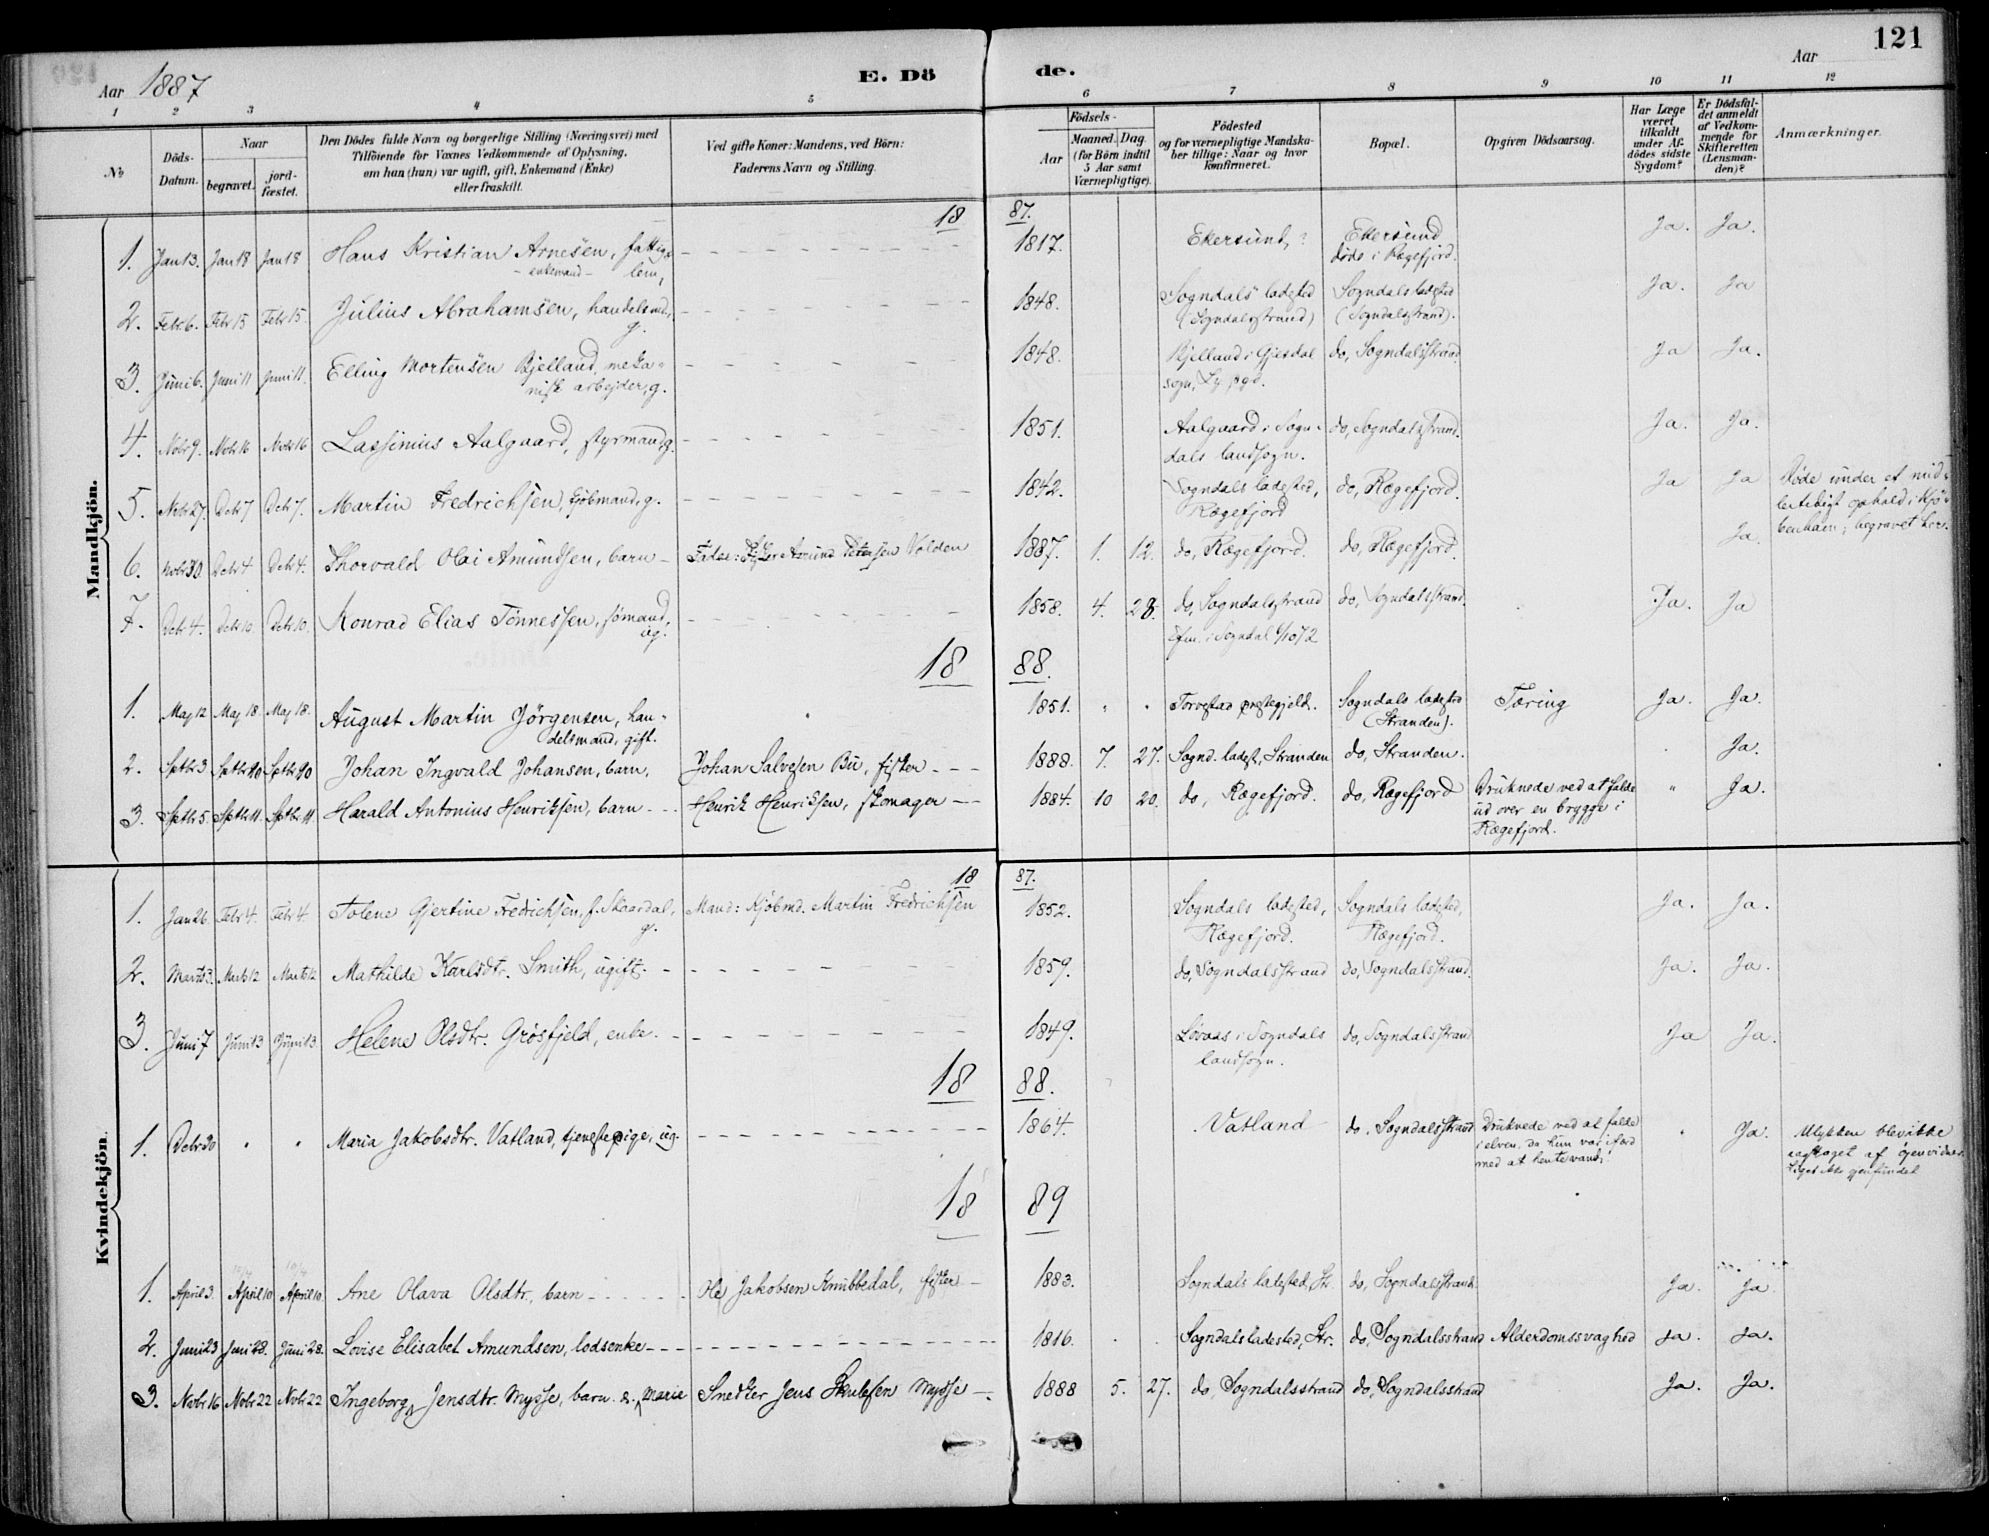 121
Aar 1887
E. Dö
de.
Aar
1 2 3 4 5 6 7 8 9 10 11 12
No
Döds-Datum.
Naar
begravet.
jord-fæstet.
Den Dödes fulde Navn og borgerlige Stilling (Næringsvei) med
Tilföiende for Voxnes Vedkommende af Oplysning,
om han (hun) var ugift, gift, Enkemand (Enke)
eller fraskilt.
Ved gifte Koner: Mandens, ved Börn:
Faderens Navn og Stilling.
Födsels-
Aar
Maaned. Dag.
(for Börn indtil
5 Aar samt
Værnepligtige).
Födested
og for værnepligtige Mandska-
ber tillige: Naar og hvor
konfirmeret.
Bopæl.
Opgiven Dödsaarsag.
Har Læge
været
tilkaldt
under Af-
dödes sidste
Sygdom?
Er Dödsfal-
det anmeldt
af Vedkom-
mende for
Skifteretten
(Lensman-
den)?
Anmærkninger.
Mandkjön.
18 87.
1. Jan 13. Jan 18 Jan 18 Hans Kristian Arnesen, fattigs- 1817. Ekersund, ? Ekersund Ja. Ja.
- enkemand - lem, döde i Rægefjord.
2. Febr 6. Febr 15 Febr 15. Julius Abrahamsen, handelsmd, 1848. Sogndals ladested Sogndals ladested Ja. Ja
g. (Sogndalsstrand) (Sogndalsstrand).
3. Juni 6. Juni 11 Juni 11. Elling Mortensen Bjelland, meka- 1848. Bjelland i Gjesdal do, Sogndalsstrand Ja Ja.
nisk arbejder, g. sogn, Ly pgd.
4. Nobr 9. Nobr 16 Nobr 16 Lassinius Aalgaard, styrmand, g. 1851. Aalgaard i Sogn- do, Sogndalsstrand. Ja. Ja.
dals landsogn.
5. Nobr 27. Debr 7 Debr 7. Martin Fredrichsen, kjöbmand, g. 1842. Sogndals ladested, do, Rægefjord. Ja Ja Döde under et mid-
Rægefjord lertidigt ophold i Kjö-
benhavn; begravet her.
6. Nobr 30. Debr 4 Debr 4. Thorvald Olai Amundsen, barn - Fader: Amund Petersen Volden 1887. 1. 12. do, Rægefjord. do, Rægefjord. Ja.
7. Debr 4. Debr 10. Debr 10. Konrad Elias Tönnessen, sömand, 1858. 4. 28. do, Sogndalsstrand do, Sogndalsstrand. Ja. Ja
ug. Kfm. i Sogndal 6/10 72
18 88.
1. Maj 12 Maj 18. Maj 18. August Martin Jörgensen, han- 1851. " " Torvestad prestegjeld. Sogndals ladested Tæring Ja. Ja.
delsmand, gift. (Stranden).
2. Sptbr 3 Sptbr 10 Sptbr 10 Johan Ingvald Johansen, barn, Johan Salvesen Bu, fisker - - - 1888. 7. 27. Sognd. ladest, Stranden do, Stranden. Ja.
3. Sptbr 5. Sptbr 11. Sptbr 11 Harald Antonius Henriksen, barn - - Henrik Henriksen, skomager - - 1884. 10 20. do, Rægefjord. do, Rægefjord Druknede ved at falde " Ja.
ud over en brygge i
Rægefjord.
Kvindekjön.
18 87.
1. Jan 26. Febr 4. Febr 4. Tolene Gjertine Fredrichsen, f. Skaardal, Mand: Kjöbmd. Martin Fredrichsen 1852. Sogndals ladested, Sogndals ladested, Ja. Ja.
g. Rægefjord. Rægefjord.
2. Marts 3. Marts 12 Marts 12 Mathilde Karlsdtr. Smith, ugift. 1859. do, Sogndalsstrand do, Sogndalsstrand. Ja. Ja.
3. Juni 7 Juni 13 Juni 13. Helene Olsdtr. Grösfjeld, enke. 1849. Lövaas i Sogndals do, Sogndalsstrand Ja Ja.
landsogn.
18 88.
1. Debr 20 " " Maria Jakobsdtr. Vatland, tjenestepige, ug. 1864. Vatland do, Sogndalsstrand Druknede ved at falde " Ja. Ulykken blev ikke
i elven, da hun var ifærd iagttaget af öjenvidner.
med at hente vand. Liget ikke gjenfundet
18 89
1. April 3. April 10 April 10. Ane Olava Olsdtr., barn - - - - Ole Jakobsen Knubbedal, fisker - 1883. Sogndals ladested, Str. do, Sogndalsstrand. Ja. Ja.
2. Juni 23 Juni 28. Juni 28. Lovise Elisabet Amundsen, lodsenke - - - 1816. Sogndals ladested, Str. do, Sogndalsstrand Alderdomssvaghed Ja. Ja.
3. Nobr 16 Nobr 22 Nobr 22 Ingeborg Jensdtr. Mysse, barn. Marie Snedker Jens Skulesen Mysse - 1888 5. 27. do, Sogndalsstrand do, Sogndalsstrand Ja. Ja.